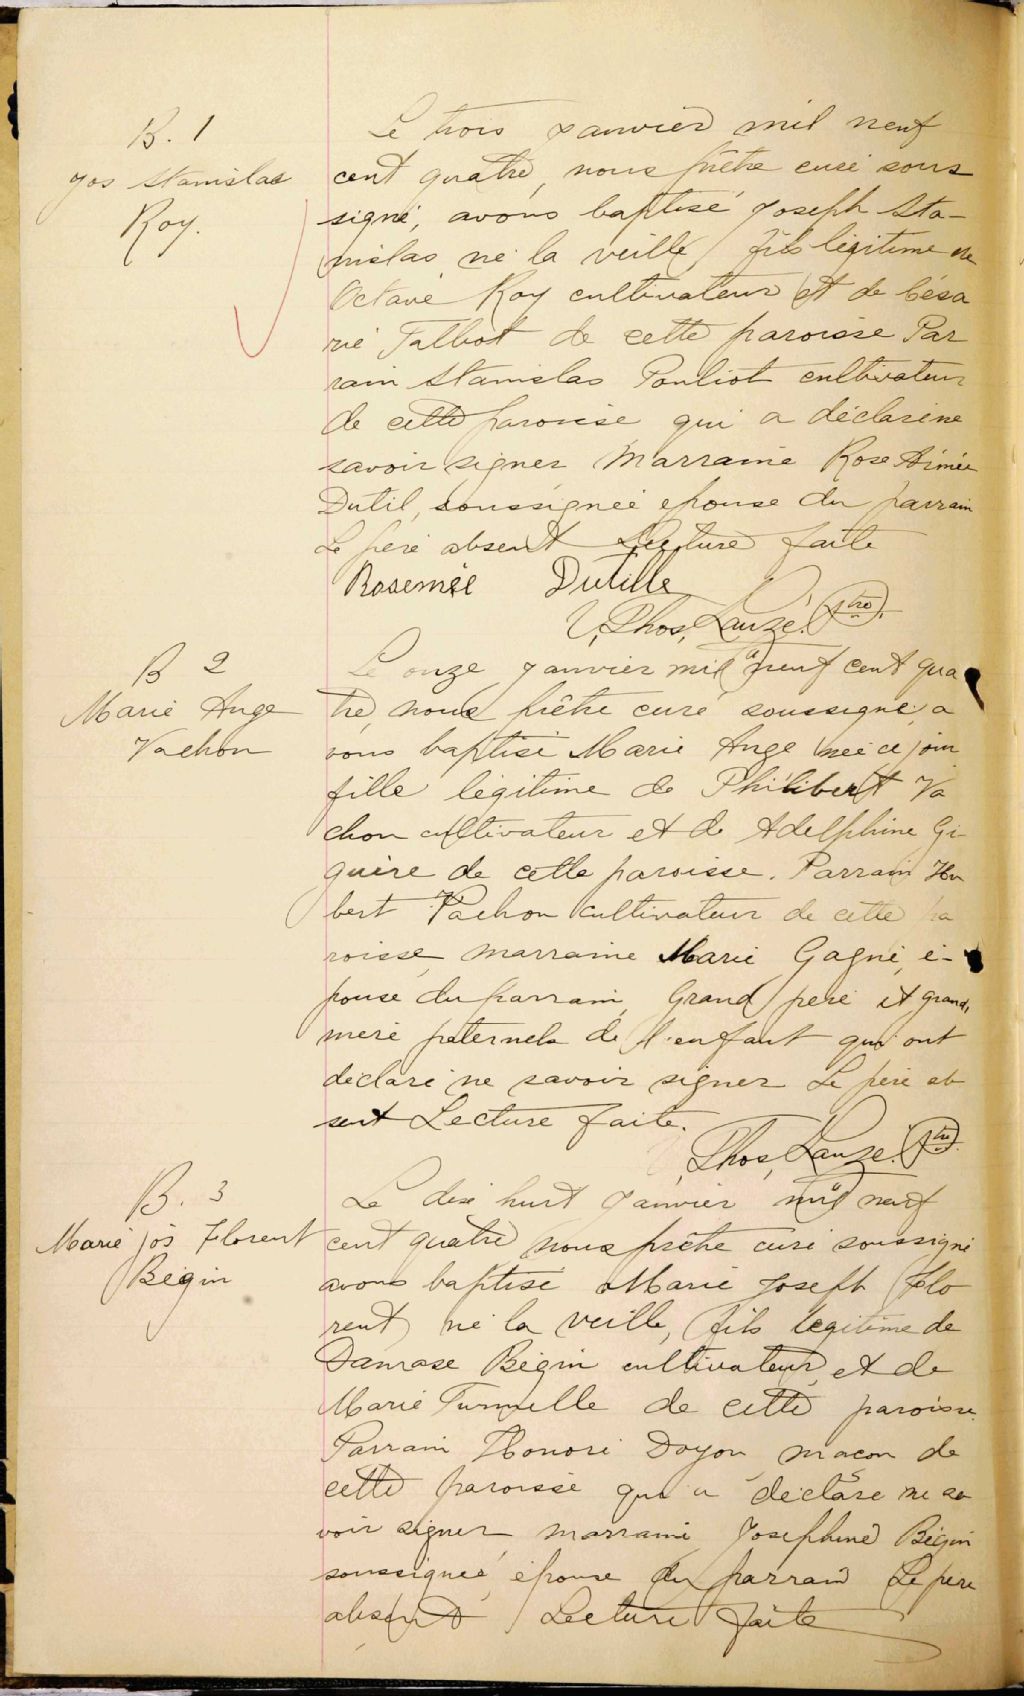 B. 1
Jos Stanislas
Roy.
Le trois janvier mil neuf
cent quatre, nous prêtre curé sous
signé, avons baptisé Joseph Sta-
nislas né la veille, fils légitime de
Octave Roy cultivateur et de Césa
rie Talbot de cette paroisse Par
rain Stanislas Pouliot cultivateur
de cette paroisse qui a déclaré ne
savoir signer Marraine Rose Aimée
Dutil, soussignée epouse du parrain
Le père absent Lecture faite
Rosemée Dutille
Thos, Lauzé. Ptre.
B 2
Marie Ange
Vachon
Le onze janvier mil neuf cent qua
tre, nous prêtre curé soussigné, a
vons baptisé Marie Ange née ce jour
fille légitime de Philibert Va
chon cultivateur et de Adelphine Gi-
guère de cette paroisse. Parrain Hu
bert Vachon cultivateur de cette pa
roisse, marraine Marie Gagné, é-
pouse du parrain, Grand père et grand,
mère paternels de l'enfant qui ont
déclaré ne savoir signer Le père ab
sent Lecture faite.
Thos, Lauzé. Ptre.
B. 3
Marie Jos Florent
Bégin
Le dix huit Janvier mil neuf
cent quatre nous prêtre curé soussigné
avons baptisé Marie Joseph Flo
rent né la veille, fils légitime de
Damase Bégin cultivateur, et de
Marie Turmelle de cette paroisse
Parrain Honoré Doyon maçon de
cette paroisse qui a déclaré ne sa
voir signer marraine Josephine Bégin
soussignée, épouse du parrain Le père
absent Lecture faite